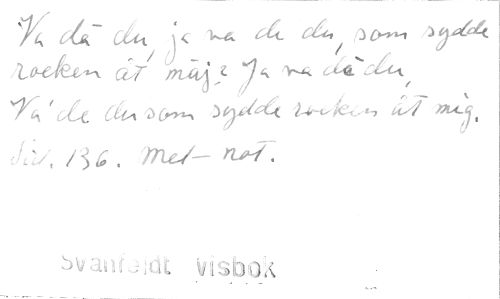 Va dä du, ja va de du, som sydde
rocken åt mäj? Ja va dä du,
Va de du som sydde rocken åt mig.
Sid. 136. Mel-not.
Svanfeldt visbok